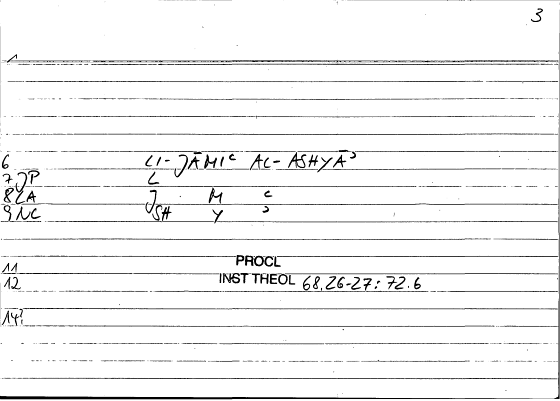 3
1
6 LI- JĀMIᶜ AL- ASHYĀᵓ
7 JP L
8 LA J M ᶜ
9 NC SH Y ᵓ
11 PROCL
12 INST THEOL 68,26-27: 72.6
14?